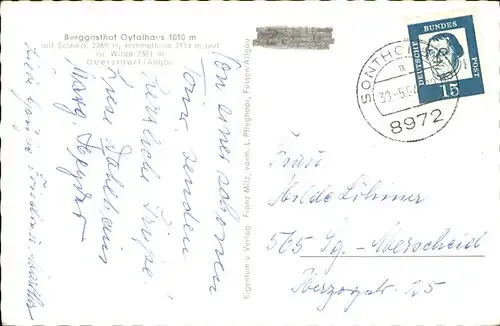 Berggasthof Oytalhaus 1010 m
mit Schneck 2269 m, Himmelhorn 2114 m und
Gr. Wilde 2381 m
Oberstdorf/Allgäu
Von einer schönen
Tour senden
herzliche Grüße
Marg.
Liebe Grüße
Eigentum u. Verlag: Franz Milz, vorm. L. Pfleghaar, Füssen/Allgäu
DEUTSCHE BUNDES POST
15
SONTHOFEN
a
8972
Frau
Hilde Löhmer
565 Sg.-Merscheid
Herzogstr. 25